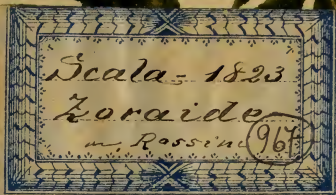 Scala - 1823
Zoraide
Rossini
967